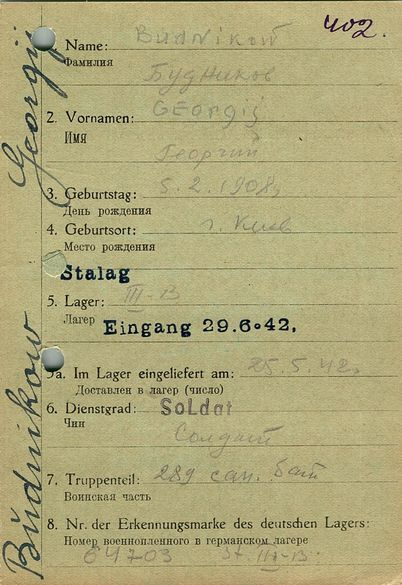 402.
Budnikow Georgij
1. Name: Budnikow
Фамилия
Будников
2. Vornamen: Georgij
Имя
Георгий
3. Geburtstag: 5.2.1908
День рождения
4. Geburtsort: г. Киев
Место рождения
Stalag
5. Lager: III-B
Лагер Eingang 29.6.42,
5a. Im Lager eingeliefert am: 25.5.42
Доставлен в лагер (число)
6. Dienstgrad: Soldat
Чин
Солдат
7. Truppenteil: 289 сан. бат
Воинская часть
8. Nr. der Erkennungsmarke des deutschen Lagers:
Номер военнопленного в германском лагере
64703 St. III-B.